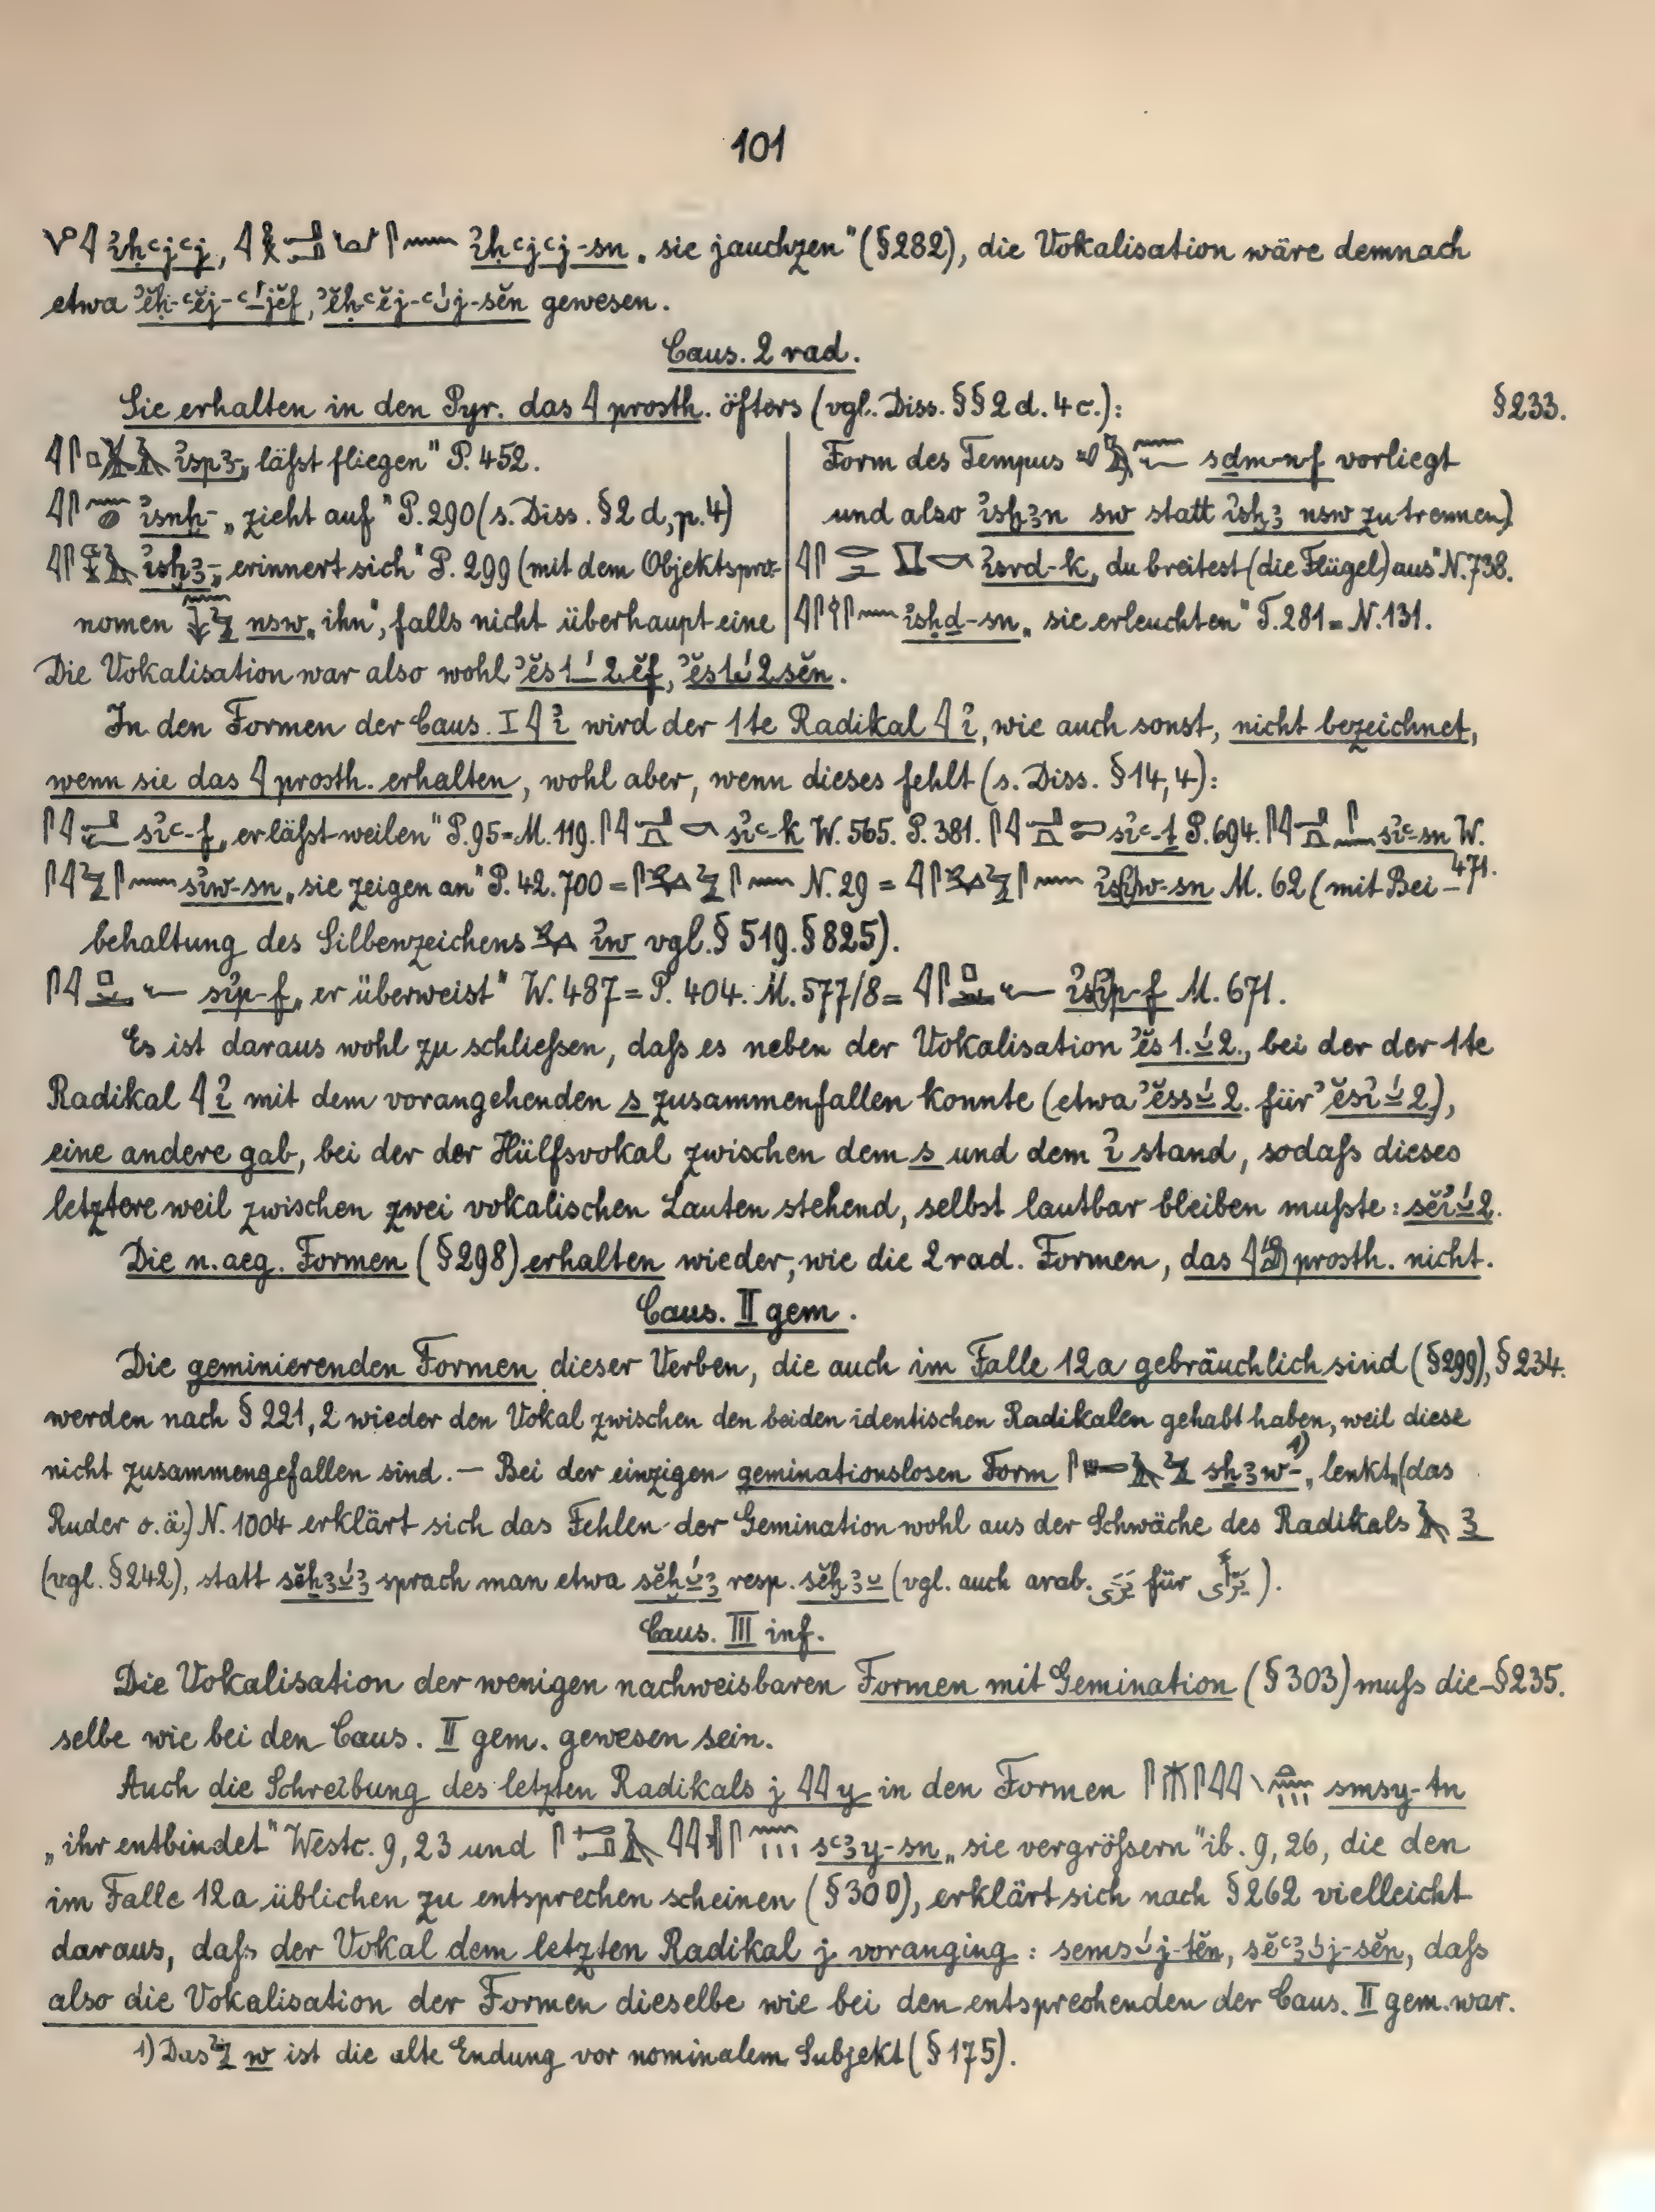 101
ἰḥꜥjꜥj, ἰḥꜥjꜥj-sn „sie jauchzen" (§282), die Vokalisation wäre demnach
etwa gewesen.
Caus. 2 rad.
Sie erhalten in den Pyr. das 𓇋 prosth. öfters (vgl. Diss. §§ 2 d. 4 c.): §233.
ἰspꜣ- „läßt fliegen" P. 452.
ἰsnḫ- „zieht auf" P. 290 (s. Diss. § 2 d, p. 4)
ἰsḫꜣ- „erinnert sich" P. 299 (mit dem Objektspro-
nomen nsw „ihn", falls nicht überhaupt eine
Form des Tempus sḏm-n-f vorliegt
und also ἰsḫꜣn sw statt ἰsḫꜣ nsw zu trennen)
ἰsrd-k „du breitest (die Flügel) aus" N. 738.
ἰsḥḏ-sn „sie erleuchten" T. 281 = N. 131.
Die Vokalisation war also wohl
In den Formen der Caus. I 𓇋 ἰ wird der 1te Radikal 𓇋 ἰ, wie auch sonst, nicht bezeichnet,
wenn sie das 𓇋 prosth. erhalten, wohl aber, wenn dieses fehlt (s. Diss. §14, 4):
sἰꜥ-f „er läßt weilen" P. 95 = M. 119. sἰꜥ-k W. 565. P. 381. sἰꜥ-ṯ P. 694. sἰꜥ-sn W.
471.
sἰw-sn „sie zeigen an" P. 42. 700 = N. 29 = M. 62 (mit Bei-
behaltung des Silbenzeichens ἰw vgl. § 519. § 825).
sἰp-f „er überweist" W. 487 = P. 404. M. 577/8 = M. 671.
Es ist daraus wohl zu schließen, daß es neben der Vokalisation bei der der 1te
Radikal 𓇋 ἰ mit dem vorangehenden s zusammenfallen konnte (etwa für
eine andere gab, bei der der Hülfsvokal zwischen dem s und dem ἰ stand, sodaß dieses
letztere weil zwischen zwei vokalischen Lauten stehend, selbst lautbar bleiben mußte:
Die n. aeg. Formen (§298) erhalten wieder, wie die 2 rad. Formen, das 𓇋 prosth. nicht.
Caus. II gem.
Die geminierenden Formen dieser Verben, die auch im Falle 12a gebräuchlich sind (§299), § 234.
werden nach § 221, 2 wieder den Vokal zwischen den beiden identischen Radikalen gehabt haben, weil diese
nicht zusammengefallen sind. — Bei der einzigen geminationslosen Form sḫꜣw-¹⁾ „lenkt" (das
Ruder o. ä.) N. 1004 erklärt sich das Fehlen der Gemination wohl aus der Schwäche des Radikals 𓄿 ꜣ
(vgl. § 242), statt sprach man etwa resp. (vgl. auch arab. für ).
Caus. III inf.
Die Vokalisation der wenigen nachweisbaren Formen mit Gemination (§ 303) muß die- §235.
selbe wie bei den Caus. II gem. gewesen sein.
Auch die Schreibung des letzten Radikals j 𓇋𓇋 y in den Formen smsy-tn
„ihr entbindet" Westc. 9, 23 und sꜥꜣy-sn „sie vergrößern" ib. 9, 26, die den
im Falle 12a üblichen zu entsprechen scheinen (§ 300), erklärt sich nach § 262 vielleicht
daraus, daß der Vokal dem letzten Radikal j voranging: daß
also die Vokalisation der Formen dieselbe wie bei den entsprechenden der Caus. II gem. war.
1) Das 𓅱 w ist die alte Endung vor nominalem Subjekt (§ 175).